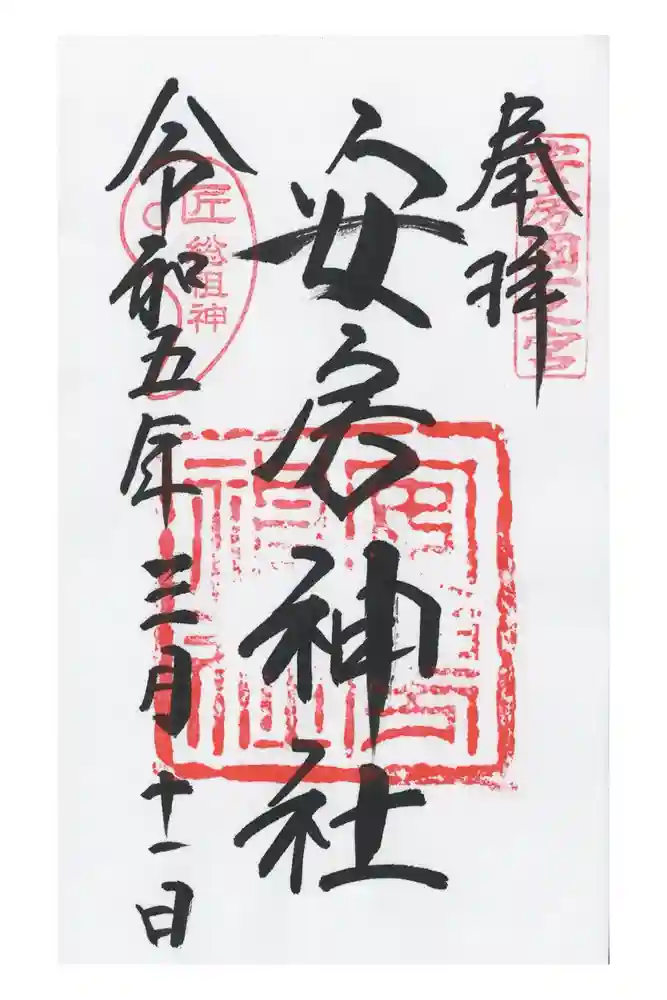 奉拝
安房國一之宮
安房神社
令和五年三月十一日
匠総祖神